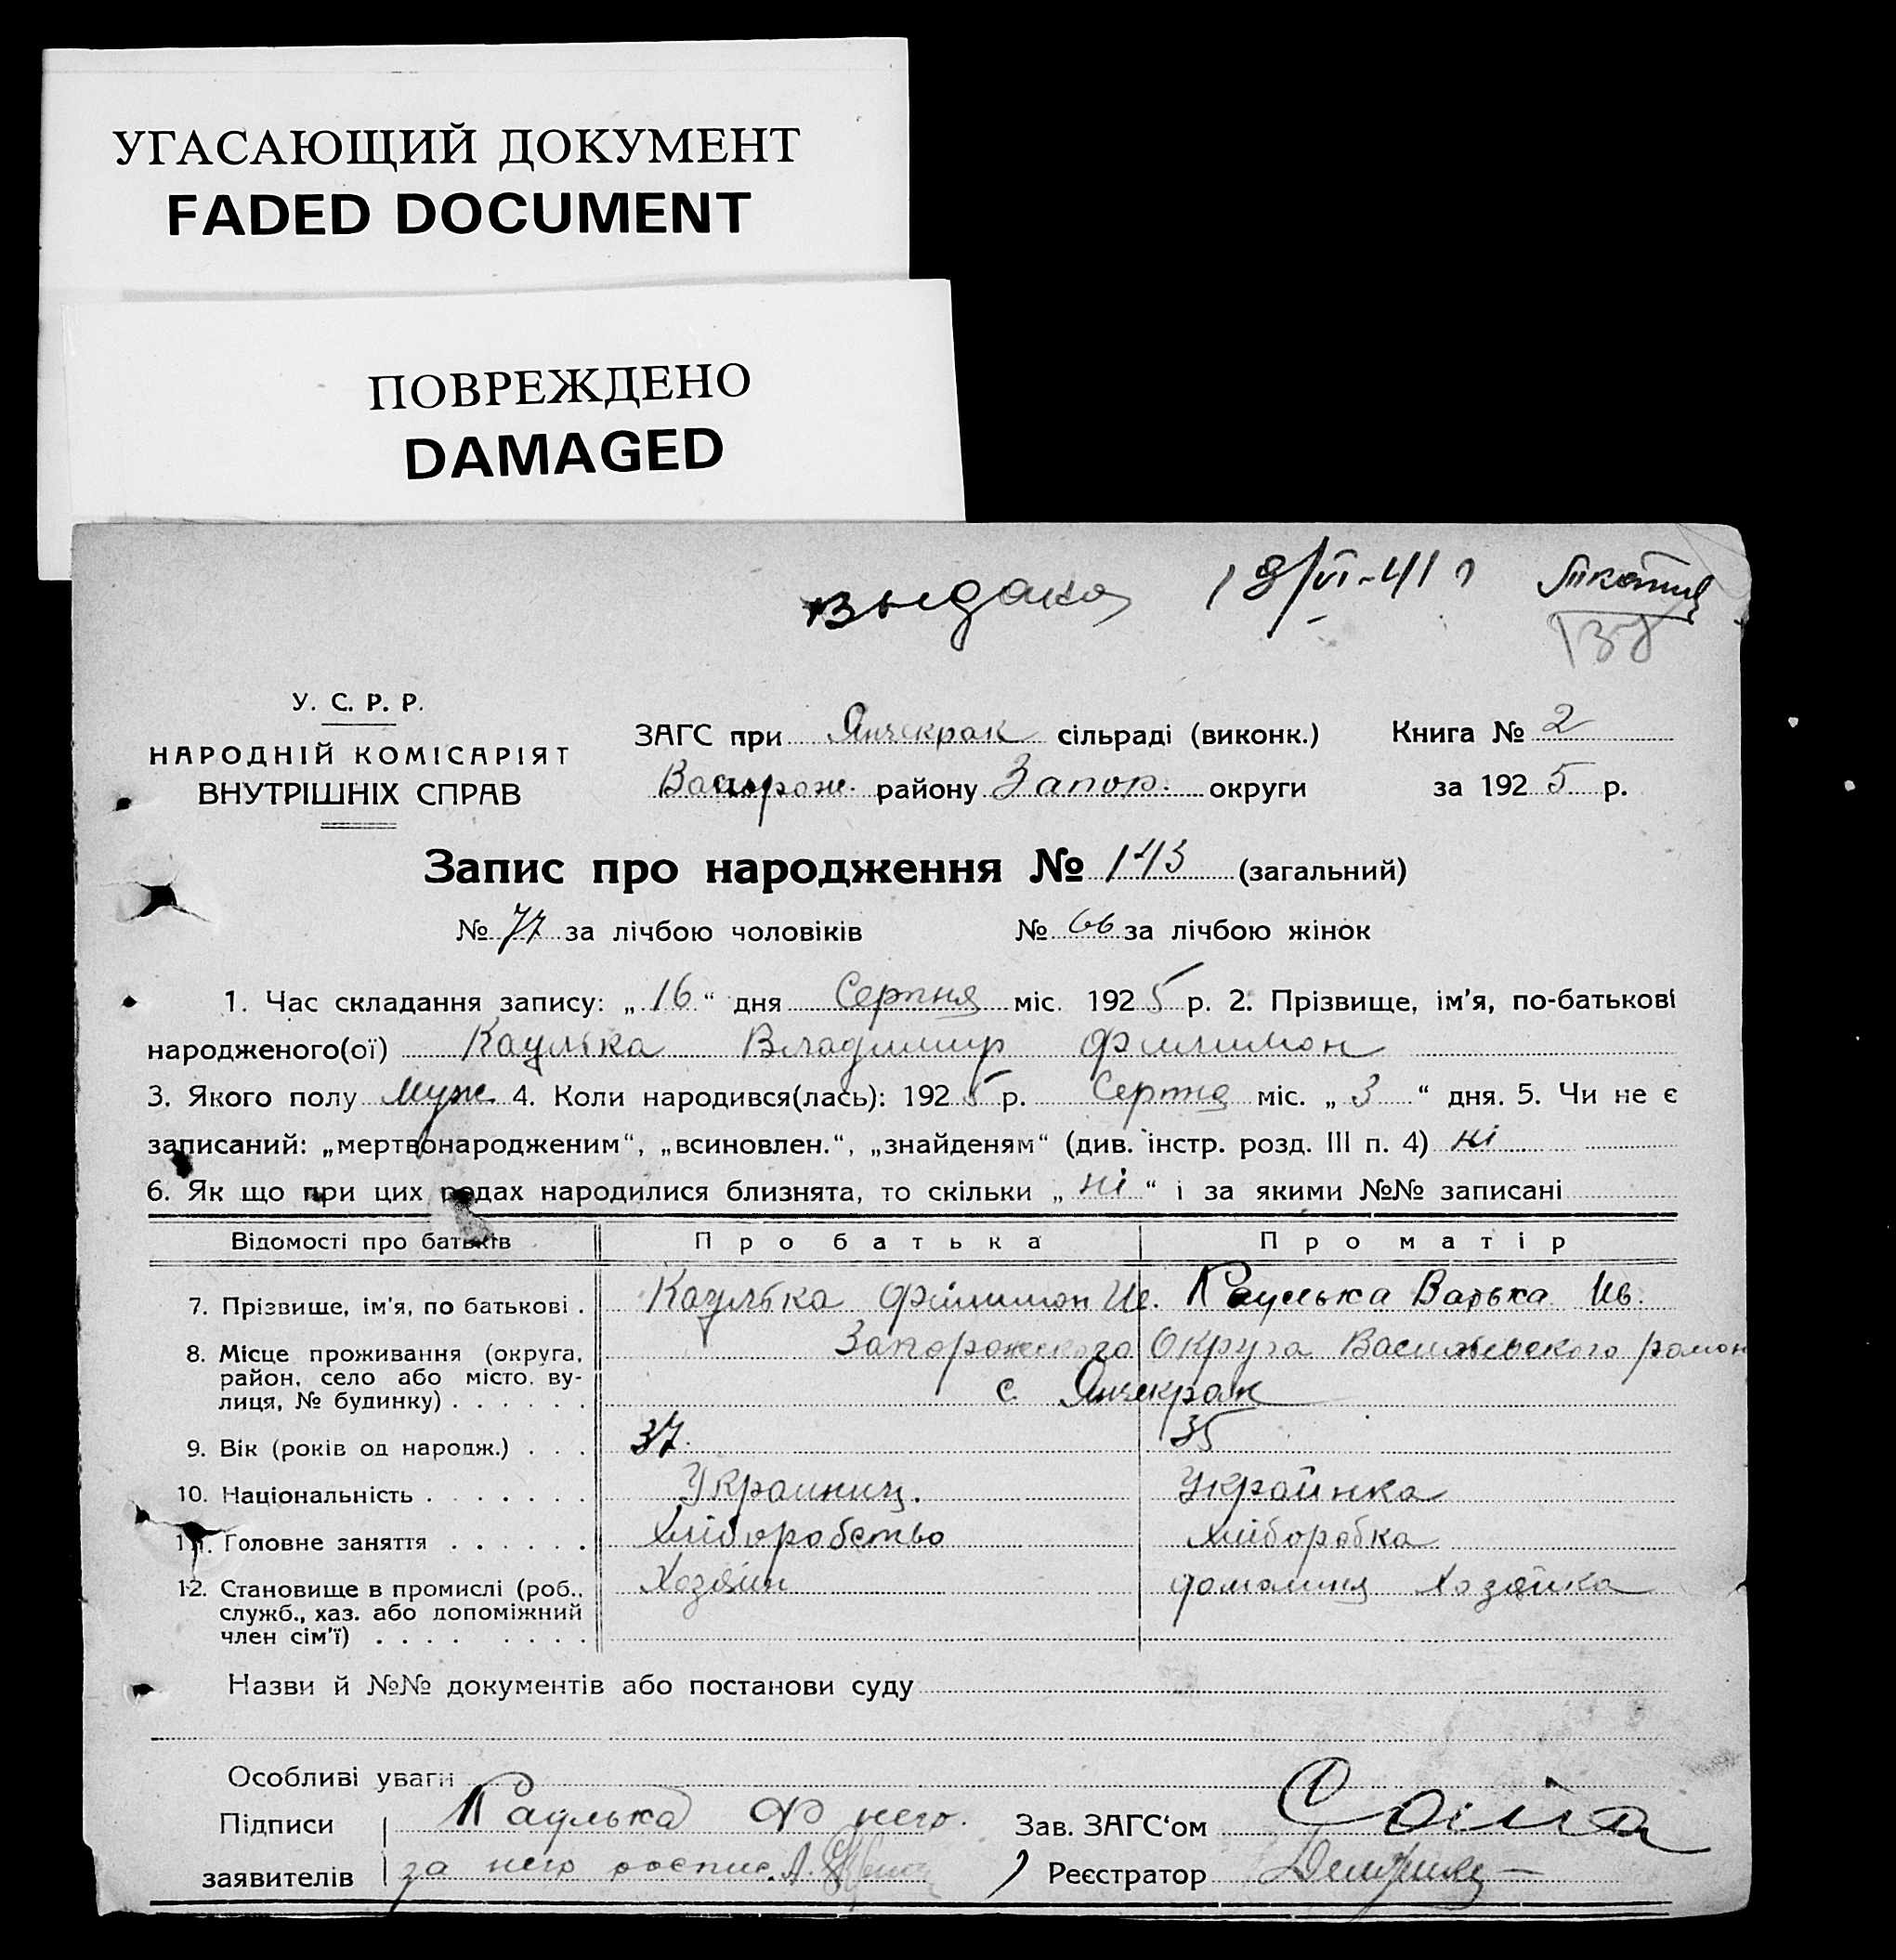 УГАСАЮЩИЙ ДОКУМЕНТ
FADED DOCUMENT
ПОВРЕЖДЕНО
DAMAGED
выдано 18/VI-41 г
У. С. Р. Р.
НАРОДНІЙ КОМІСАРІЯТ
ВНУТРІШНІХ СПРАВ
ЗАГС при Янчекрак сільраді (виконк.) Книга № 2
району Запор. округи за 1925 р.
Запис про народження № 143 (загальний)
№ 77 за лічбою чоловіків № 66 за лічбою жінок
1. Час складання запису: „16“ дня Серпня міс. 1925 р. 2. Прізвище, ім'я, по-батькові
народженого(ої) Каулька Владимир Филимон
3. Якого полу муж. 4. Коли народився(лась): 1925 р. Серпня міс. „3“ дня. 5. Чи не є
записаний: „мертвонародженим“, „всиновлен.“, „знайденям“ (див. інстр. розд. III п. 4) ні
6. Як що при цих родах народилися близнята, то скільки „ні“ і за якими №№ записані
Відомості про батьків Про батька Про матір
7. Прізвище, ім'я, по батькові . Каулька Филимон Ив. Каулька Варька Ив.
8. Місце проживання (округа, Запорожского Округа Васильевского район
район, село або місто, ву-
лиця, № будинку) . . . . . . с. Янчекрак
9. Вік (років од народж.) . . . 37. 35
10. Національність . . . . . . . Украинец. Украйнка
11. Головне заняття . . . . . . Хліборобство хліборобка
12. Становище в промислі (роб., Хозяин домашня хозяйка
служб., хаз. або допоміжний
член сім'ї) . . . . . . . .
Назви й №№ документів або постанови суду
Особливі уваги
Підписи Каулька Ф него. Зав. ЗАГС‘ом
заявителів за него роспис. А. Реєстратор